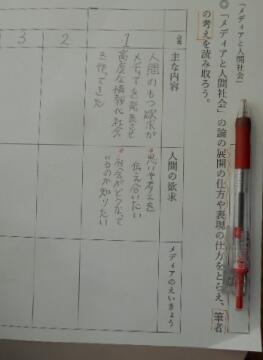 「メディアと人間社会」
◎「メディアと人間社会」の論の展開の仕方や表現の仕方をとらえ、筆者
の考えを読み取ろう。
段
主な内容
人間の欲求
メディアのえいきょう
1
人間のもつ欲求が
メディアを発展させ
高度な情報化社会
を作ってきた
思いや考えを
伝え合いたい
社会がどうなって
いるのか知りたい
2
3